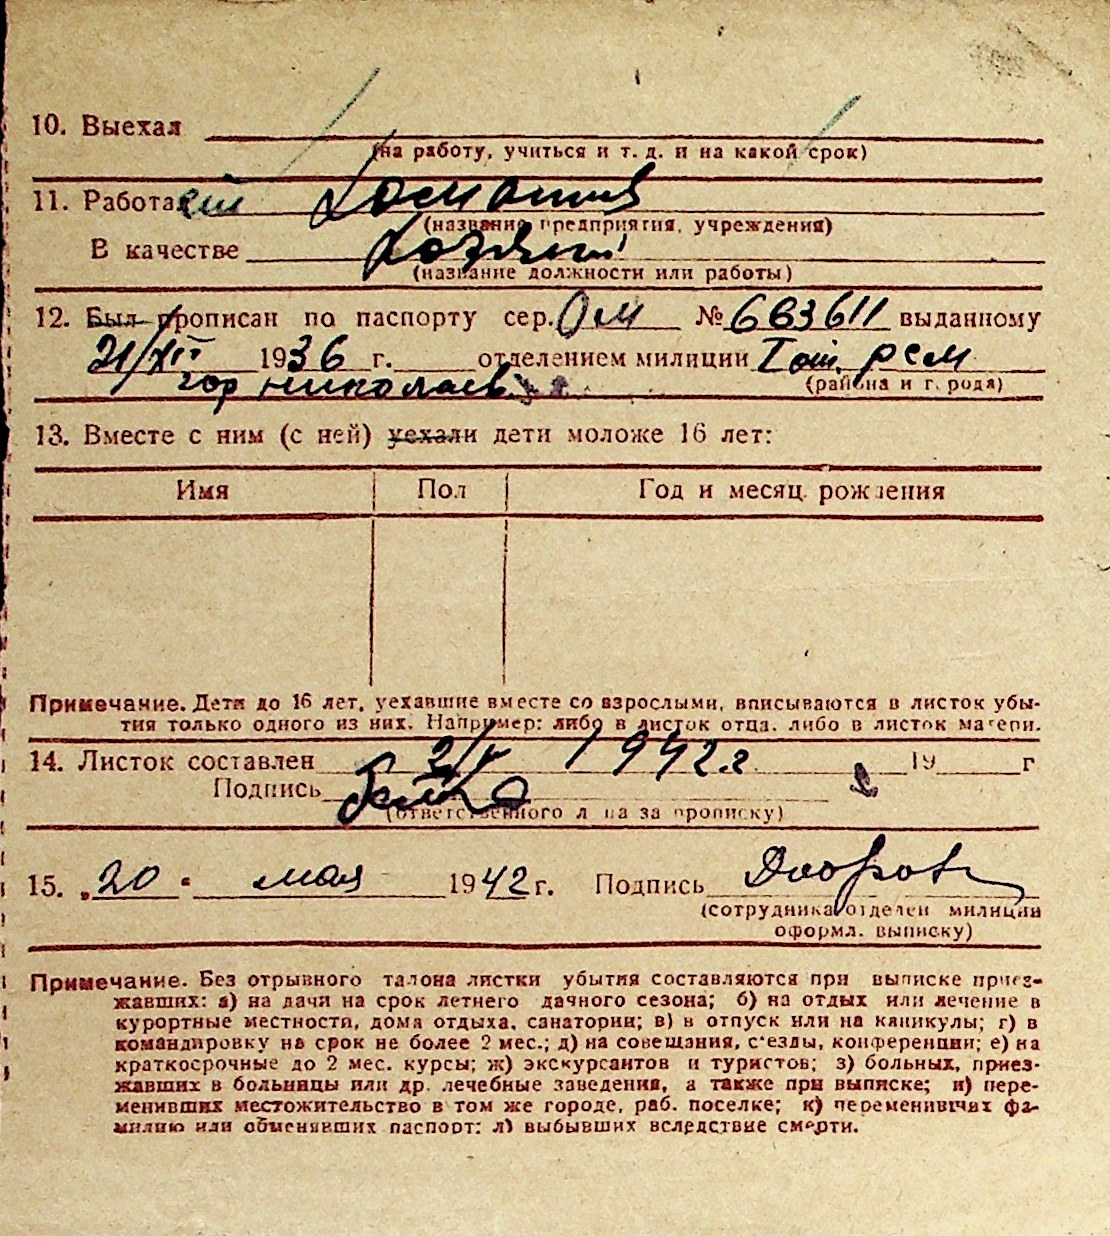 10. Выехал
(на работу, учиться и т. д. и на какой срок)
11. Работает
(название предприятия, учреждения)
В качестве
(название должности или работы)
12. Был прописан по паспорту сер. ОМ № 663611 выданному
21/XII 1936 г. отделением милиции
гор Николаев (района и города)
13. Вместе с ним (с ней) уехали дети моложе 16 лет:
Имя Пол Год и месяц рождения
Примечание. Дети до 16 лет, уехавшие вместе со взрослыми, вписываются в листок убы-
тия только одного из них. Например: либо в листок отца, либо в листок матери.
14. Листок составлен 2/V 1942 г 19 г
Подпись
(ответственного лица за прописку)
15. „20“ мая 1942 г. Подпись
(сотрудника отделен милиции
оформл. выписку)
Примечание. Без отрывного талона листки убытия составляются при выписке приез-
жавших: а) на дачи на срок летнего дачного сезона; б) на отдых или лечение в
курортные местности, дома отдыха, санатории; в) в отпуск или на каникулы; г) в
командировку на срок не более 2 мес.; д) на совещания, с'езды, конференции; е) на
краткосрочные до 2 мес. курсы; ж) экскурсантов и туристов; з) больных, приез-
жавших в больницы или др. лечебные заведения, а также при выписке; и) пере-
менивших местожительство в том же городе, раб. поселке; к) переменивших фа-
милию или обменявших паспорт; л) выбывших вследствие смерти.